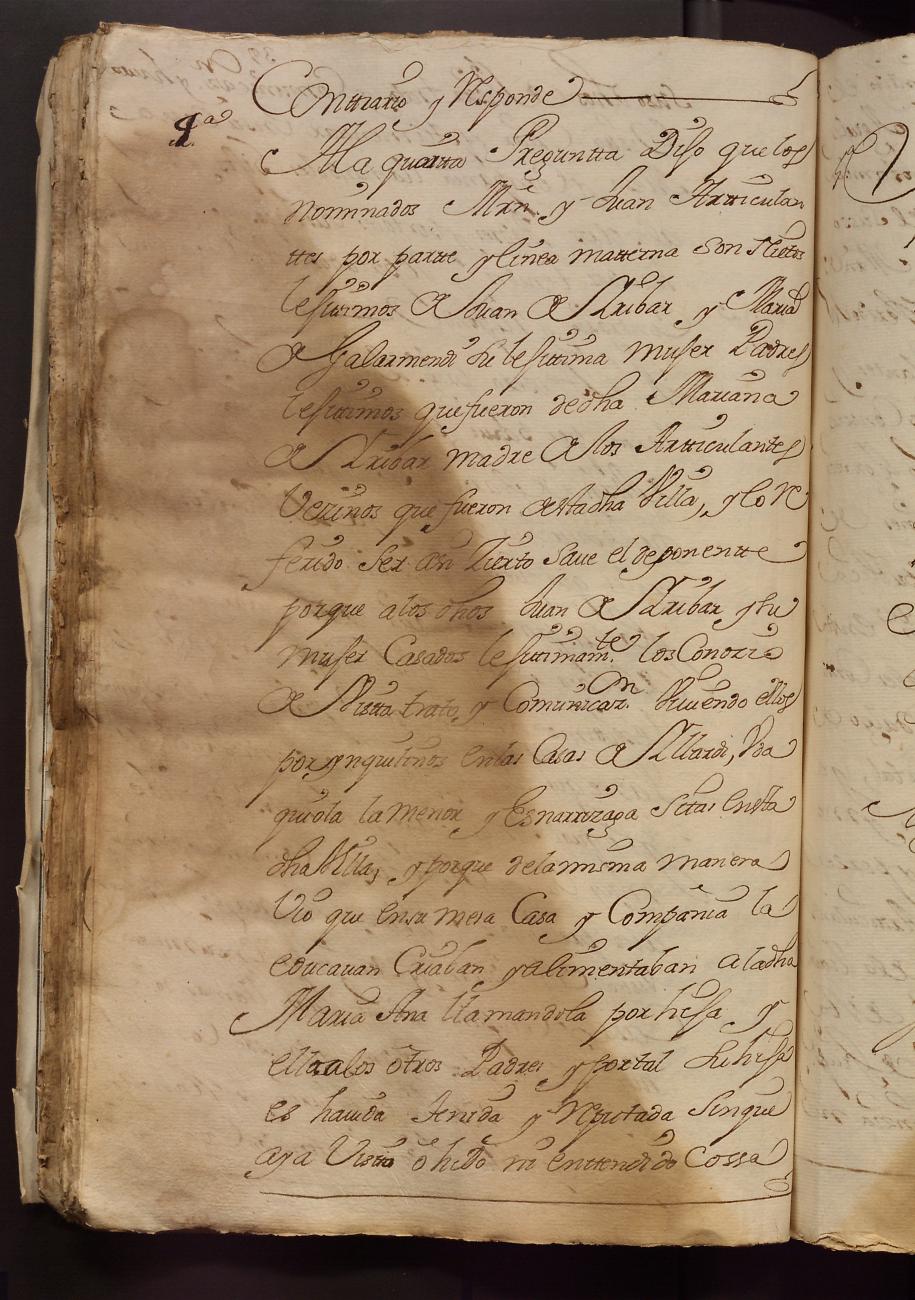 Conttrario y Responde
4.ª
A la quarta Preguntta Dijo que los
nominados Mrn. y Juan Artticulan
ttes por partte y linea matterna son Nietos
lejitimos de Juan de Arribar y Maria
de Galarmendi su lejitima mujer Padres
lejitimos que fueron de dha Mariana
de Arribar madre de los Artticulantes
Vezinos que fueron de esta dha Villa, y lo Re
ferido ser assi Zierto save el deponentte
porque a los dhos Juan de Arribar y su
mujer Casados lejitimamte. los Conozio
de Vistta tratto, y Comunicazon. viviendo ellos
por ynquilinos en las Casas de
quiola la menor y Esnarrizaga sitas en esta
dha Villa, y porque de la misma manera
Vio que en su mesa Casa y Compañia la
educavan Criaban y alimentaban a la dha
Maria Ana llamandola por hija y
ella a los otros Padres y por tal su hija
es havida tenida y Reputada sin que
aya Vistto ohido ni enttendido Cossa